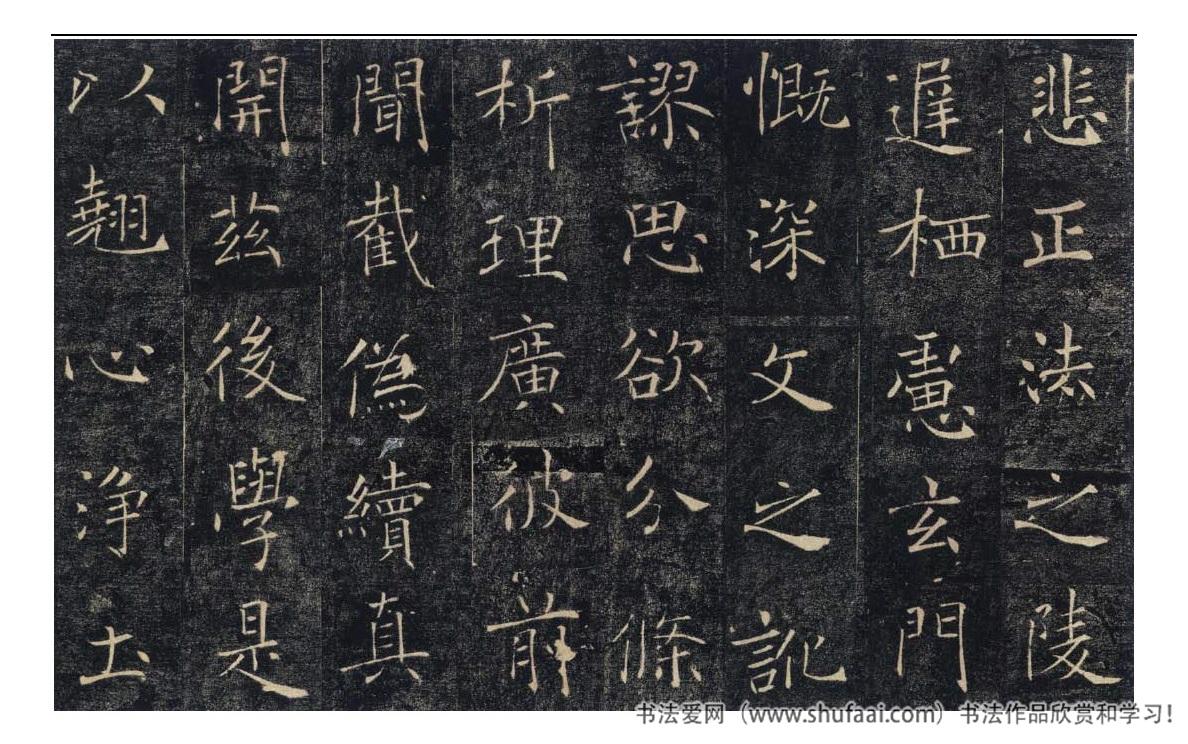 悲正法之陵
遅栖慮玄門
慨深文之訛
謬思欲分條
析理廣彼前
聞截偽續真
開茲後學是
以翹心淨土
书法爱网（www.shufaai.com）书法作品欣赏和学习！